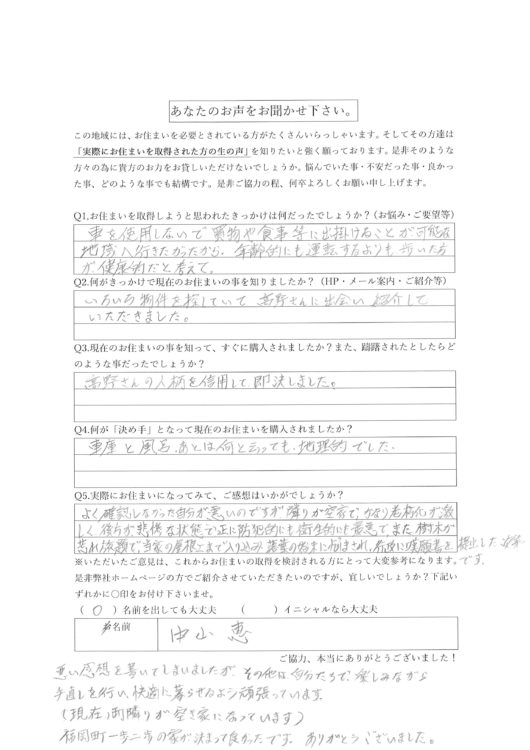 あなたのお声をお聞かせ下さい。
この地域には、お住まいを必要とされている方がたくさんいらっしゃいます。そしてその方達は
「実際にお住まいを取得された方の生の声」を知りたいと強く願っております。是非そのような
方々の為に貴方のお力をお貸しいただけないでしょうか。悩んでいた事・不安だった事・良かっ
た事、どのような事でも結構です。是非ご協力の程、何卒よろしくお願い申し上げます。
Q1.お住まいを取得しようと思われたきっかけは何だったでしょうか?(お悩み・ご要望等)
車を使用しないで買物や食事等に出掛けることが可能な
地域へ行きたかったから、年齢的にも運転するよりも歩いた方
が健康的だと考えて。
Q2.何がきっかけで現在のお住まいの事を知りましたか?(HP・メール案内・ご紹介等)
いろいろ物件を探していて 高野さんに出会い 紹介して
いただきました。
Q3.現在のお住まいの事を知って、すぐに購入されましたか?また、躊躇されたとしたらど
のような事だったでしょうか?
高野さんの人柄を信用して即決しました。
Q4.何が「決め手」となって現在のお住まいを購入されましたか?
車庫と風呂、あとは何と言っても、地理的でした。
Q5.実際にお住まいになってみて、ご感想はいかがでしょうか?
よく確認しなかった自分が悪いのですが隣りが空家で、かなり老朽化が激
しく 後方が悲惨な状態で正に防犯的にも衛生的にも最悪で、また樹木が
荒れ放題で当家の屋根にまで入り込み 落葉の始末に悩まされ、 を提出した次第
です。
※いただいたご意見は、これからお住まいの取得を検討される方にとって大変参考になります。
是非弊社ホームページの方でご紹介させていただきたいのですが、宜しいでしょうか?下記い
ずれかに○印をお付け下さいませ。
( ○ )名前を出しても大丈夫 (   )イニシャルなら大丈夫
お名前 中山 恵
ご協力、本当にありがとうございました!
悪い感想を書いてしまいましたが、その他は、自分たちで、楽しみながら
手直しを行い、快適に暮らせるよう頑張っています。
(現在、両隣りが空き家になっています)
福岡町一歩二歩の家が決まって良かったです。ありがとうございました。